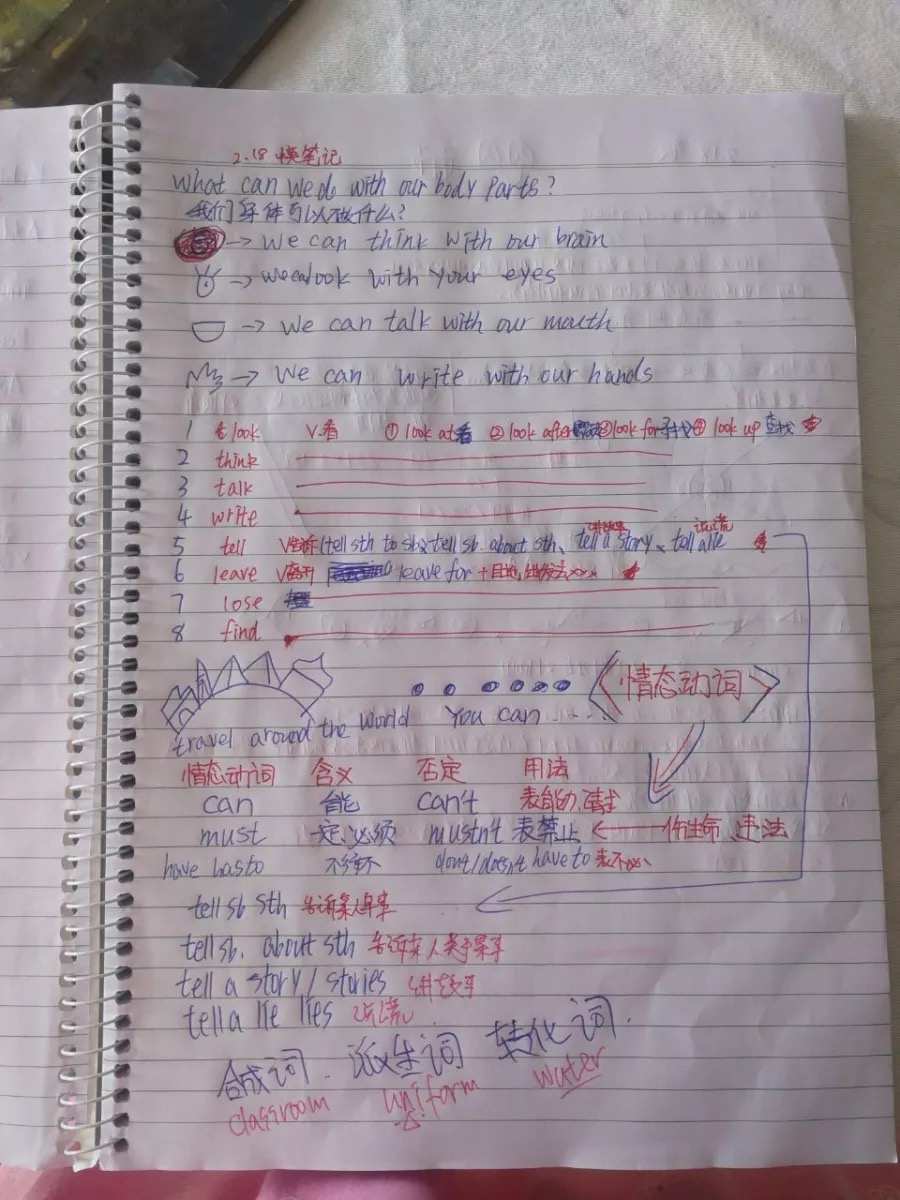 2.18 模笔记
What can we do with our body parts?
我们身体可以做什么?
→ We can think with our brain
→ we can look with your eyes
→ We can talk with our mouth
→ We can write with our hands
1 look v.看 ① look at 看 ② look after ③ look for 寻找 ④ look up 查找
2 think
3 talk
4 write
5 tell v.告诉 (tell sth to sb、tell sb. about sth、tell a story、tell a lie 讲故事 说谎
6 leave v.离开 leave for +目地,出发去xxx
7 lose
8 find
<情态动词>
travel around the world You can ......
情态动词 含义 否定 用法
can 能 can't 表能力、请求
must 一定、必须 mustn't 表禁止 ← 伤生命、违法
have has to 不得不 don't/doesn't have to 表不必、
tell sb sth 告诉某人某事
tell sb. about sth 告诉某人关于某事
tell a story / stories 讲故事
tell a lie lies 说谎
合成词. 派生词 转化词.
classroom uniform water